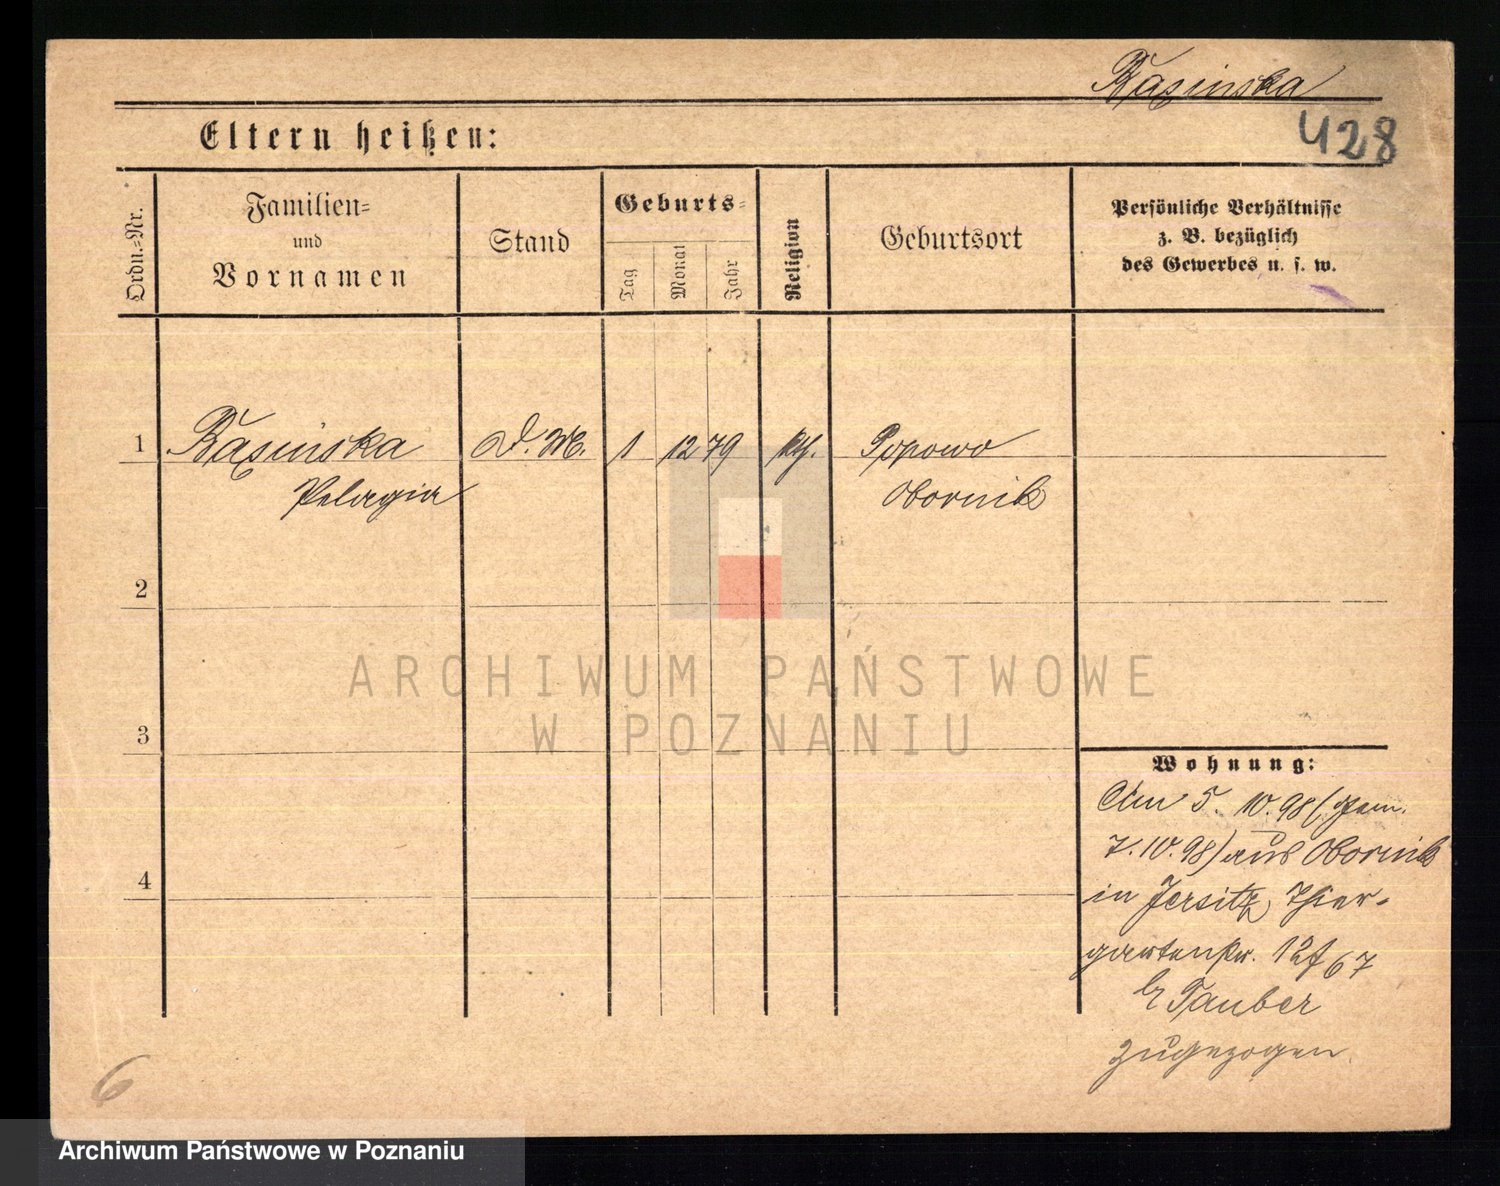 Bąsinska
428
Eltern heißen:
Ordn.=Nr.
Familien=
und
Vornamen
Stand
Geburts=
Tag
Monat
Jahr
Religion
Geburtsort
Persönliche Verhältnisse
z. B. bezüglich
des Gewerbes u. s. w.
1 Bąsinska D. M. 1 12 79 kth. Popowo
Pelagia Obornik
2
3
4
Wohnung:
Am 5. 10. 98 (Gem.
7. 10. 98) aus Obornik
in Jersitz, Thier-
gartenstr. 12 f 67
bei Tauber
zugezogen.
6
ARCHIWUM PAŃSTWOWE
W POZNANIU
Archiwum Państwowe w Poznaniu